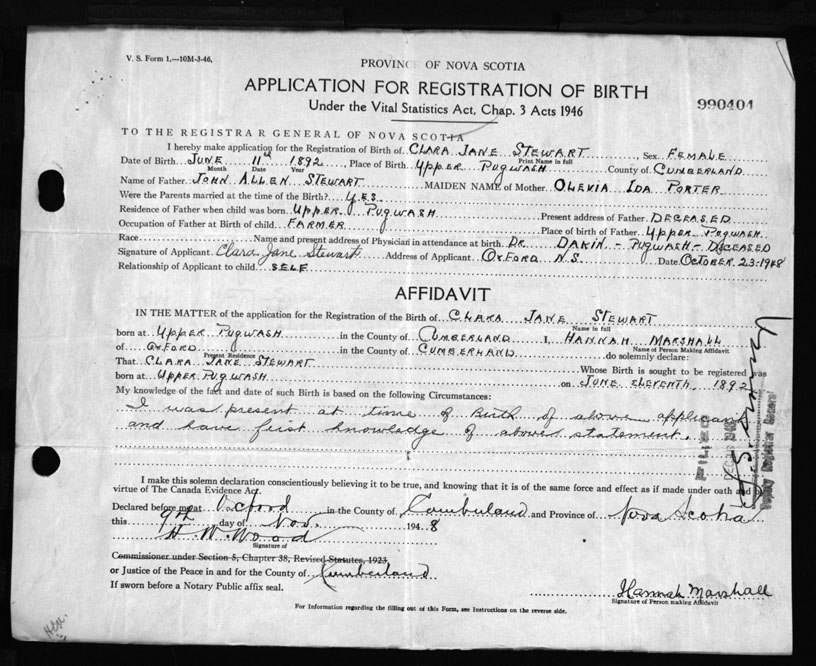 V. S. Form 1.—10M-3-46.
PROVINCE OF NOVA SCOTIA
APPLICATION FOR REGISTRATION OF BIRTH
990404
Under the Vital Statistics Act, Chap. 3 Acts 1946
TO THE REGISTRAR GENERAL OF NOVA SCOTIA
I hereby make application for the Registration of Birth of CLARA JANE STEWART, Sex FEMALE
Print Name in full
Date of Birth JUNE 11th 1892, Place of Birth UPPER PUGWASH County of CUMBERLAND
Month Date Year
Name of Father JOHN ALLEN STEWART MAIDEN NAME of Mother OLEVIA IDA PORTER
Were the Parents married at the time of the Birth? YES
Residence of Father when child was born UPPER PUGWASH Present address of Father DECEASED
Occupation of Father at Birth of child FARMER Place of birth of Father UPPER PUGWASH
Race Name and present address of Physician in attendance at birth DR. DAKIN - PUGWASH - DECEASED
Signature of Applicant Clara Jane Stewart Address of Applicant OXFORD N.S. Date OCTOBER 23-1948
Relationship of Applicant to child SELF
AFFIDAVIT
IN THE MATTER of the application for the Registration of the Birth of CLARA JANE STEWART
Name in full
born at UPPER PUGWASH in the County of CUMBERLAND I, HANNAH MARSHALL
Name of Person Making Affidavit
of OXFORD in the County of CUMBERLAND do solemnly declare:
Present Residence
That CLARA JANE STEWART Whose Birth is sought to be registered was
born at UPPER PUGWASH on JUNE ELEVENTH 1892
My knowledge of the fact and date of such Birth is based on the following Circumstances:
I was present at time of Birth of above applicant
and have first knowledge of above statement.
FILED
Deputy Registrar General
I make this solemn declaration conscientiously believing it to be true, and knowing that it is of the same force and effect as if made under oath and by
virtue of The Canada Evidence Act.
Declared before me at Oxford in the County of Cumberland and Province of Nova Scotia
this 9th day of Nov. 1948
H. W. Wood
Signature of
Commissioner under Section 5, Chapter 38, Revised Statutes, 1923
or Justice of the Peace in and for the County of Cumberland
If sworn before a Notary Public affix seal.
Hannah Marshall
Signature of Person making Affidavit
For Information regarding the filling out of this Form, see Instructions on the reverse side.